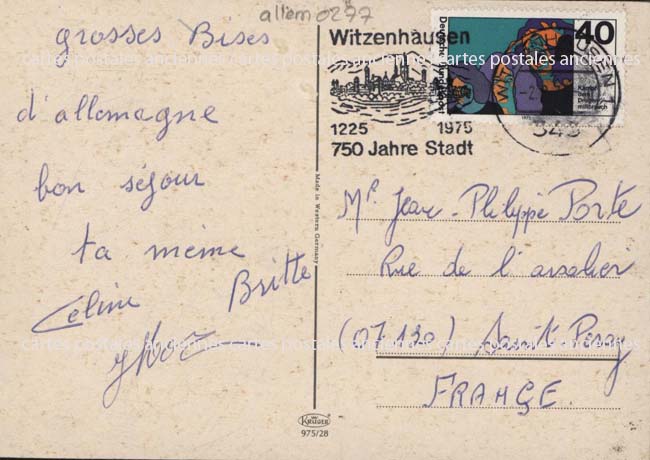 allem 0277
grosses Bises
d'allemagne
bon séjour
ta mémé
Celine Britte
Witzenhausen
1225 1975
750 Jahre Stadt
40
Deutsche Bundespost
343
cartes postales anciennes cartes postales anciennes cartes postales anciennes
Made in Western Germany
Mr Jean-Philippe Porte
Rue de l'
(07130) Saint Peray
FRANCE.
cartes postales anciennes cartes postales anciennes cartes postales anciennes
KRÜGER
975/28